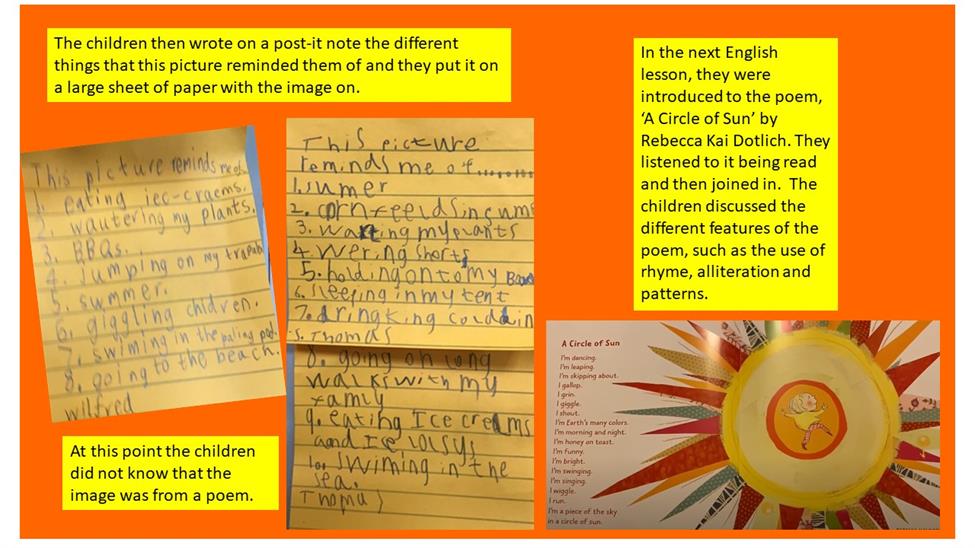 The children then wrote on a post-it note the different
things that this picture reminded them of and they put it on
a large sheet of paper with the image on.
This picture reminds me of
1. eating iec-craems.
2. wautering my plants.
3. BBQs.
4. Jumping on my
5. summer.
6. giggling chldren.
7. swiming in the
8. going to the beach.
wilfred
At this point the children
did not know that the
image was from a poem.
This picture
reminds me of........
1. sumer
2.
3. myplants
4. wering shorts
5. holding onto my
6. sleeping in my tent
7. dringking
Thomas
8. going on long
walks with my
famly
9. eating Ice creams
and Ice lolsys
10. swiming in the
sea.
Thomas
In the next English
lesson, they were
introduced to the poem,
‘A Circle of Sun’ by
Rebecca Kai Dotlich. They
listened to it being read
and then joined in.  The
children discussed the
different features of the
poem, such as the use of
rhyme, alliteration and
patterns.
A Circle of Sun
I'm dancing.
I'm leaping.
I'm skipping about.
I gallop.
I grin.
I giggle.
I shout.
I'm Earth's many colors.
I'm morning and night.
I'm honey on toast.
I'm funny.
I'm bright.
I'm swinging.
I'm singing.
I wiggle.
I run.
I'm a piece of the sky
in a circle of sun.